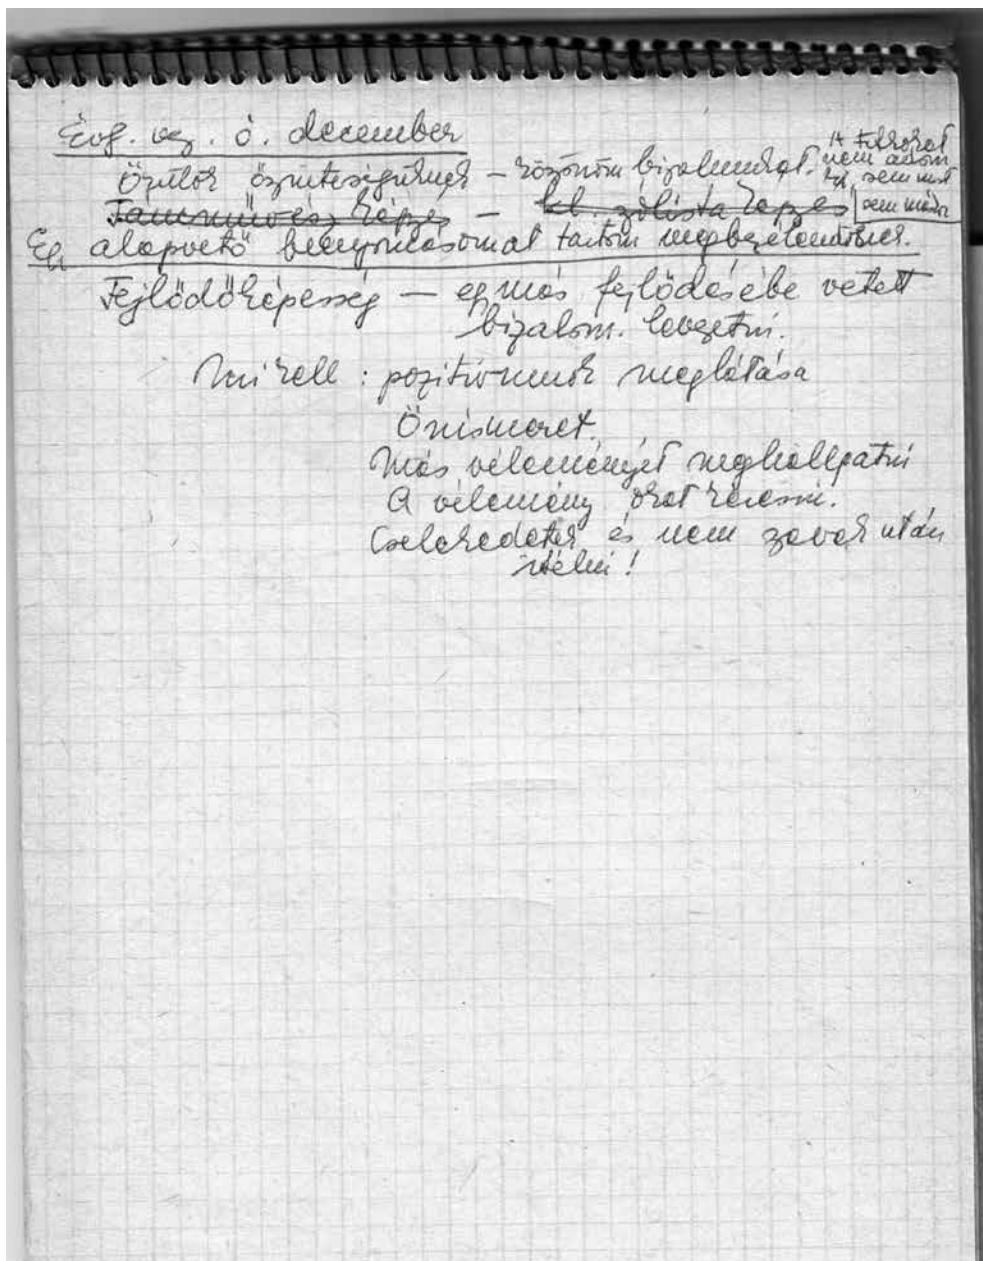 Évf. vez. ó. december
Örülök őszinteségüknek – köszönöm bizalmukat. A titkokat
nem adom
ki, sem most
sem máskor
Táncművész képzés – kl. szólista képzés
Egy alapvető benyomásomat tartom megbeszélendőnek.
Fejlődőképesség – egymás fejlődésébe vetett
bizalom. levezetni.
Mi kell : pozitívumok meglátása
Önismeret.
Más véleményét meghallgatni
A vélemény okát keresni.
Cselekedetek és nem szavak után
ítélni !